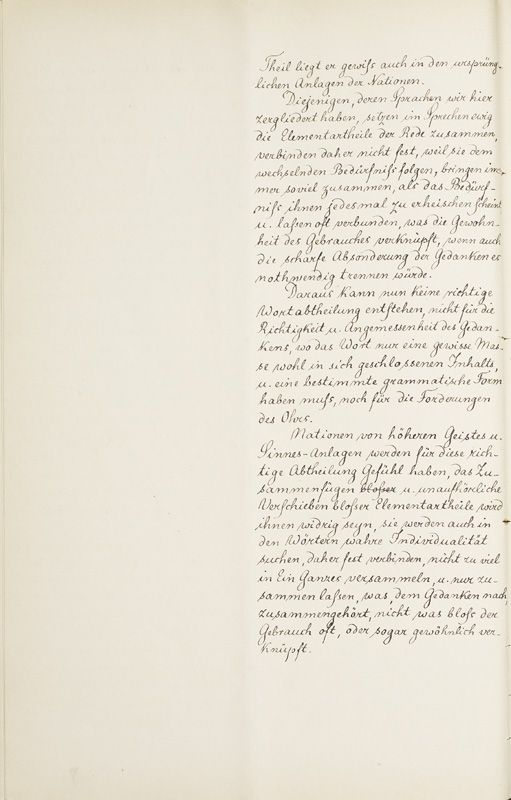 Theil liegt er gewiſs auch in den ursprüng-
lichen Anlagen der Nationen.
Diejenigen, deren Sprachen wir hier
zergliedert haben, setzen im Sprechen ewig
die Elementartheile der Rede zusammen,
verbinden daher nicht fest, weil sie dem
wechselnden Bedürfniſs folgen, bringen im-
mer soviel zusammen, als das Bedürf-
niſs ihnen jedesmal zu erheischen scheint
u. laſsen oft verbunden, was die Gewohn-
heit des Gebrauches verknüpft, wenn auch
die scharfe Absonderung der Gedanken es
nothwendig trennen würde.
Daraus kann nun keine richtige
Wortabtheilung entstehen, nicht für die
Richtigkeit u. Angemessenheit des Gedan-
kens, wo das Wort nur eine gewisse Mas-
se wohl in sich geschlossenen Inhalts,
u. eine bestimmte grammatische Form
haben muſs, noch für die Forderungen
des Ohrs.
Nationen von höheren Geistes u.
Sinnes-Anlagen werden für diese rich-
tige Abtheilung Gefühl haben, das Zu-
sammenfügen bloſser u. unaufhörliche
Verschieben bloſser Elementartheile wird
ihnen widrig seyn, sie werden auch in
den Wörtern wahre Individualität
suchen, daher fest verbinden, nicht zu viel
in Ein Ganzes versammeln, u. nur zu-
sammen laſsen, was dem Gedanken nach
zusammengehört, nicht was bloſs der
Gebrauch oft, oder sogar gewöhnlich ver-
knüpft.